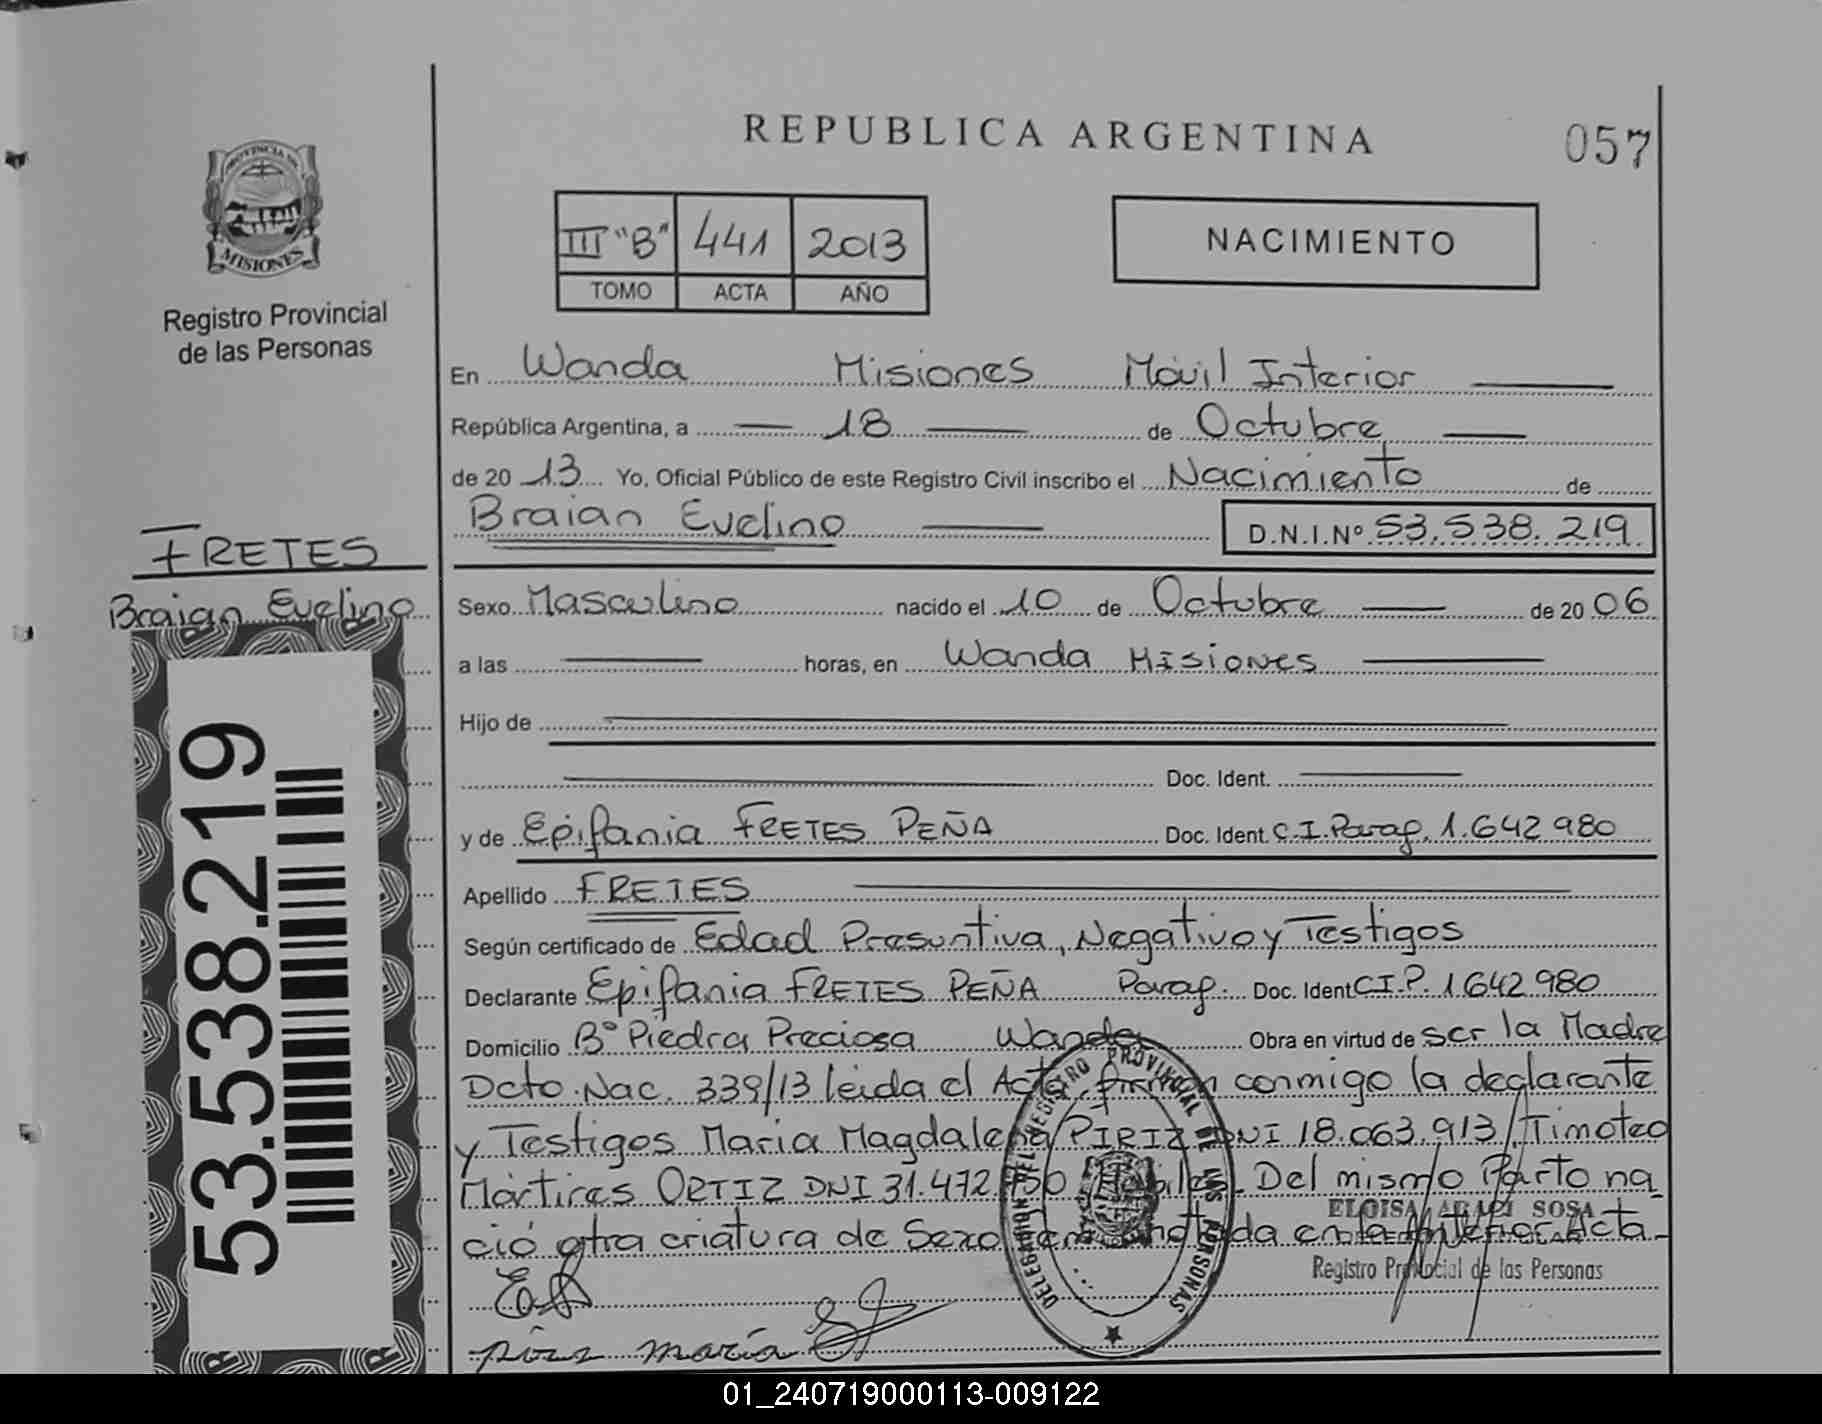 REPUBLICA ARGENTINA
057
PROVINCIA DE
MISIONES
Registro Provincial
de las Personas
III "B" 441 2013
TOMO ACTA AÑO
NACIMIENTO
En Wanda Misiones Móvil Interior
República Argentina, a 18 de Octubre
de 20 13 Yo, Oficial Público de este Registro Civil inscribo el Nacimiento de
Braian Evelino D.N.I.Nº 53.538.219
FRETES
Braian Evelino
Sexo Masculino nacido el 10 de Octubre de 20 06
a las horas, en Wanda Misiones
Hijo de
Doc. Ident.
y de Epifania FRETES PEÑA Doc. Ident. C.I.Parag. 1.642 980
Apellido FRETES
Según certificado de Edad Presuntiva, Negativo y Testigos
Declarante Epifania FRETES PEÑA Parag. Doc. Ident C.I.P. 1 642 980
Domicilio Bº Piedra Preciosa Wanda Obra en virtud de ser la Madre
Dcto. Nac. 339/13 leida el Acta, firman conmigo la declarante
y Testigos Maria Magdalena PIRIZ DNI 18.063.913, Timoteo
Mártires ORTIZ DNI 31.472 Hábiles. Del mismo Parto na_
ció otra criatura de Sexo anotada en la Anterior Acta
53.538.219
DELEGACION DEL REGISTRO PROVINCIAL DE LAS PERSONAS
ELOISA ARAPI SOSA
Registro Provincial de las Personas
piriz maría
01_240719000113-009122